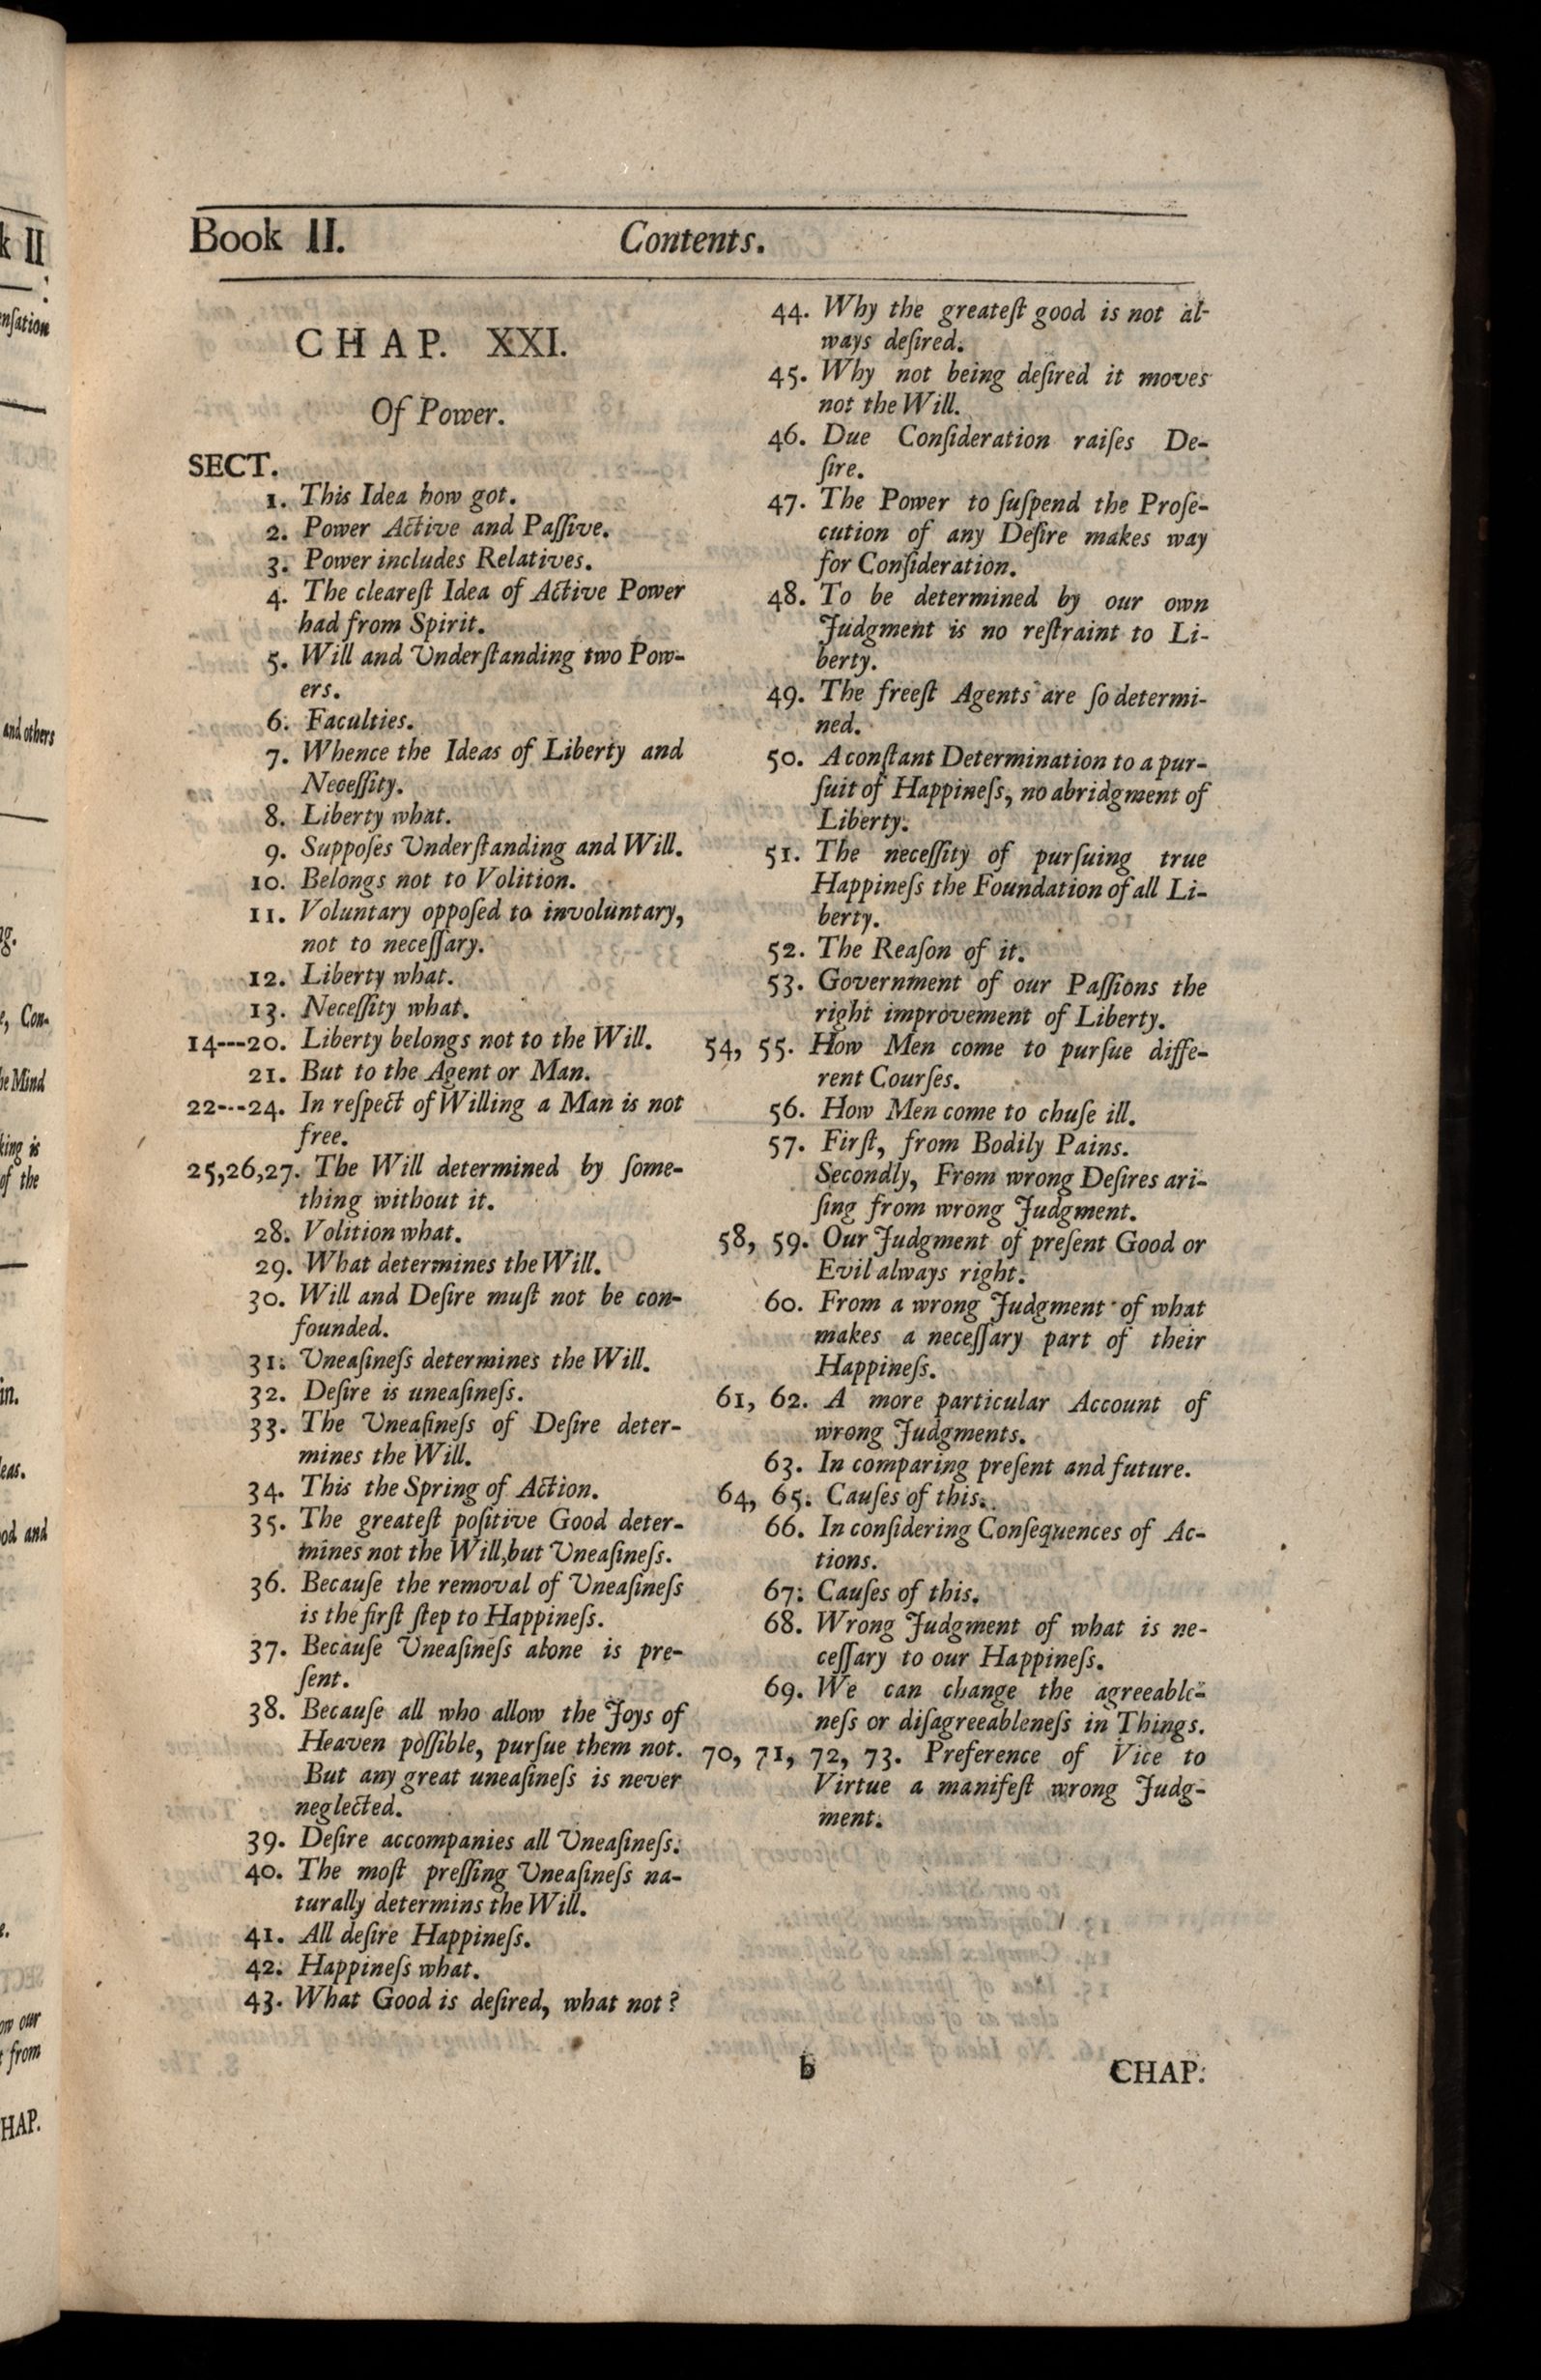 Book II.
Contents.
CHAP. XXI.
Of Power.
SECT.
1. This Idea how got.
2. Power Active and Paſſive.
3. Power includes Relatives.
4. The cleareſt Idea of Active Power
had from Spirit.
5. Will and Underſtanding two Pow-
ers.
6. Faculties.
7. Whence the Ideas of Liberty and
Neceſſity.
8. Liberty what.
9. Suppoſes Underſtanding and Will.
10. Belongs not to Volition.
11. Voluntary oppoſed to involuntary,
not to neceſſary.
12. Liberty what.
13. Neceſſity what.
14---20. Liberty belongs not to the Will.
21. But to the Agent or Man.
22---24. In reſpect of Willing a Man is not
free.
25,26,27. The Will determined by ſome-
thing without it.
28. Volition what.
29. What determines the Will.
30. Will and Deſire muſt not be con-
founded.
31. Uneaſineſs determines the Will.
32. Deſire is uneaſineſs.
33. The Uneaſineſs of Deſire deter-
mines the Will.
34. This the Spring of Action.
35. The greateſt poſitive Good deter-
mines not the Will, but Uneaſineſs.
36. Becauſe the removal of Uneaſineſs
is the firſt ſtep to Happineſs.
37. Becauſe Uneaſineſs alone is pre-
ſent.
38. Becauſe all who allow the Joys of
Heaven poſſible, purſue them not.
But any great uneaſineſs is never
neglected.
39. Deſire accompanies all Uneaſineſs.
40. The moſt preſſing Uneaſineſs na-
turally determins the Will.
41. All deſire Happineſs.
42. Happineſs what.
43. What Good is deſired, what not?
44. Why the greateſt good is not al-
ways deſired.
45. Why not being deſired it moves
not the Will.
46. Due Conſideration raiſes De-
ſire.
47. The Power to ſuſpend the Proſe-
cution of any Deſire makes way
for Conſideration.
48. To be determined by our own
Judgment is no reſtraint to Li-
berty.
49. The freeſt Agents are ſo determi-
ned.
50. A conſtant Determination to a pur-
ſuit of Happineſs, no abridgment of
Liberty.
51. The neceſſity of purſuing true
Happineſs the Foundation of all Li-
berty.
52. The Reaſon of it.
53. Government of our Paſſions the
right improvement of Liberty.
54, 55. How Men come to purſue diffe-
rent Courſes.
56. How Men come to chuſe ill.
57. Firſt, from Bodily Pains.
Secondly, From wrong Deſires ari-
ſing from wrong Judgment.
58, 59. Our Judgment of preſent Good or
Evil always right.
60. From a wrong Judgment of what
makes a neceſſary part of their
Happineſs.
61, 62. A more particular Account of
wrong Judgments.
63. In comparing preſent and future.
64, 65. Cauſes of this.
66. In conſidering Conſequences of Ac-
tions.
67. Cauſes of this.
68. Wrong Judgment of what is ne-
ceſſary to our Happineſs.
69. We can change the agreeable-
neſs or diſagreeableneſs in Things.
70, 71, 72, 73. Preference of Vice to
Virtue a manifeſt wrong Judg-
ment.
b
CHAP.